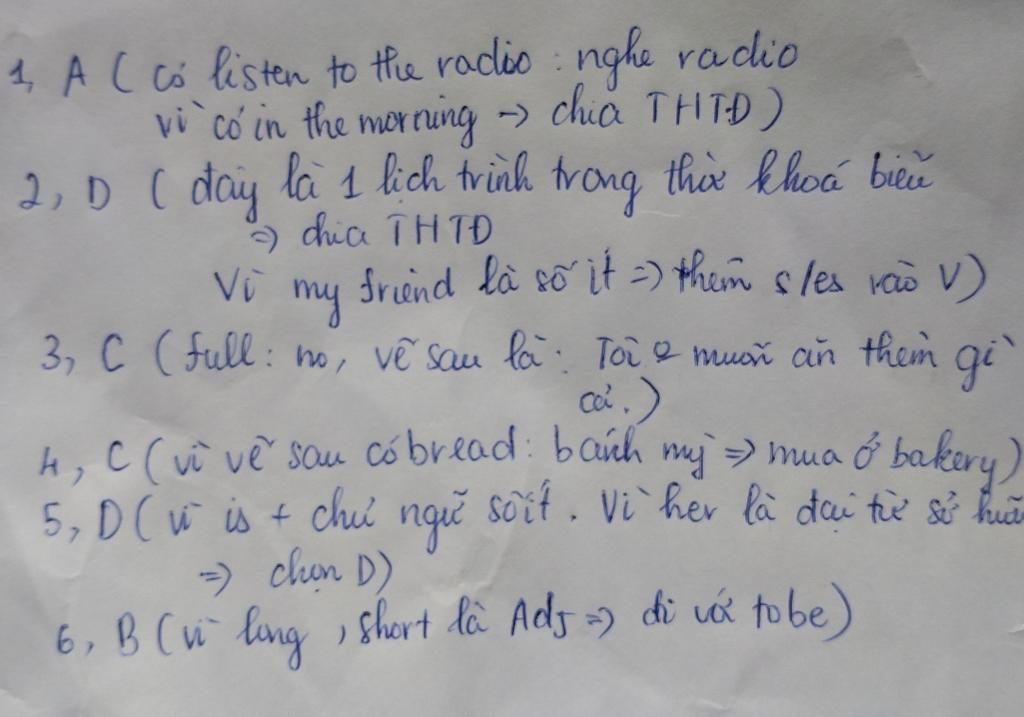 1, A ( có listen to the radio : nghe radio
vì có in the morning -> chia THTĐ )
2, D ( đây là 1 lịch trình trong thời khoá biểu
=> chia THTĐ
Vì my friend là số ít => thêm s/es vào V)
3, C ( full : no, vế sau là : Tôi ko muốn ăn thêm gì
cả. )
4, C ( vì vế sau có bread : bánh mỳ => mua ở bakery )
5, D ( vì is + chủ ngữ số ít . Vì her là đại từ sở hữu
=> chọn D)
6, B ( vì long , short là Adj => đi với tobe )